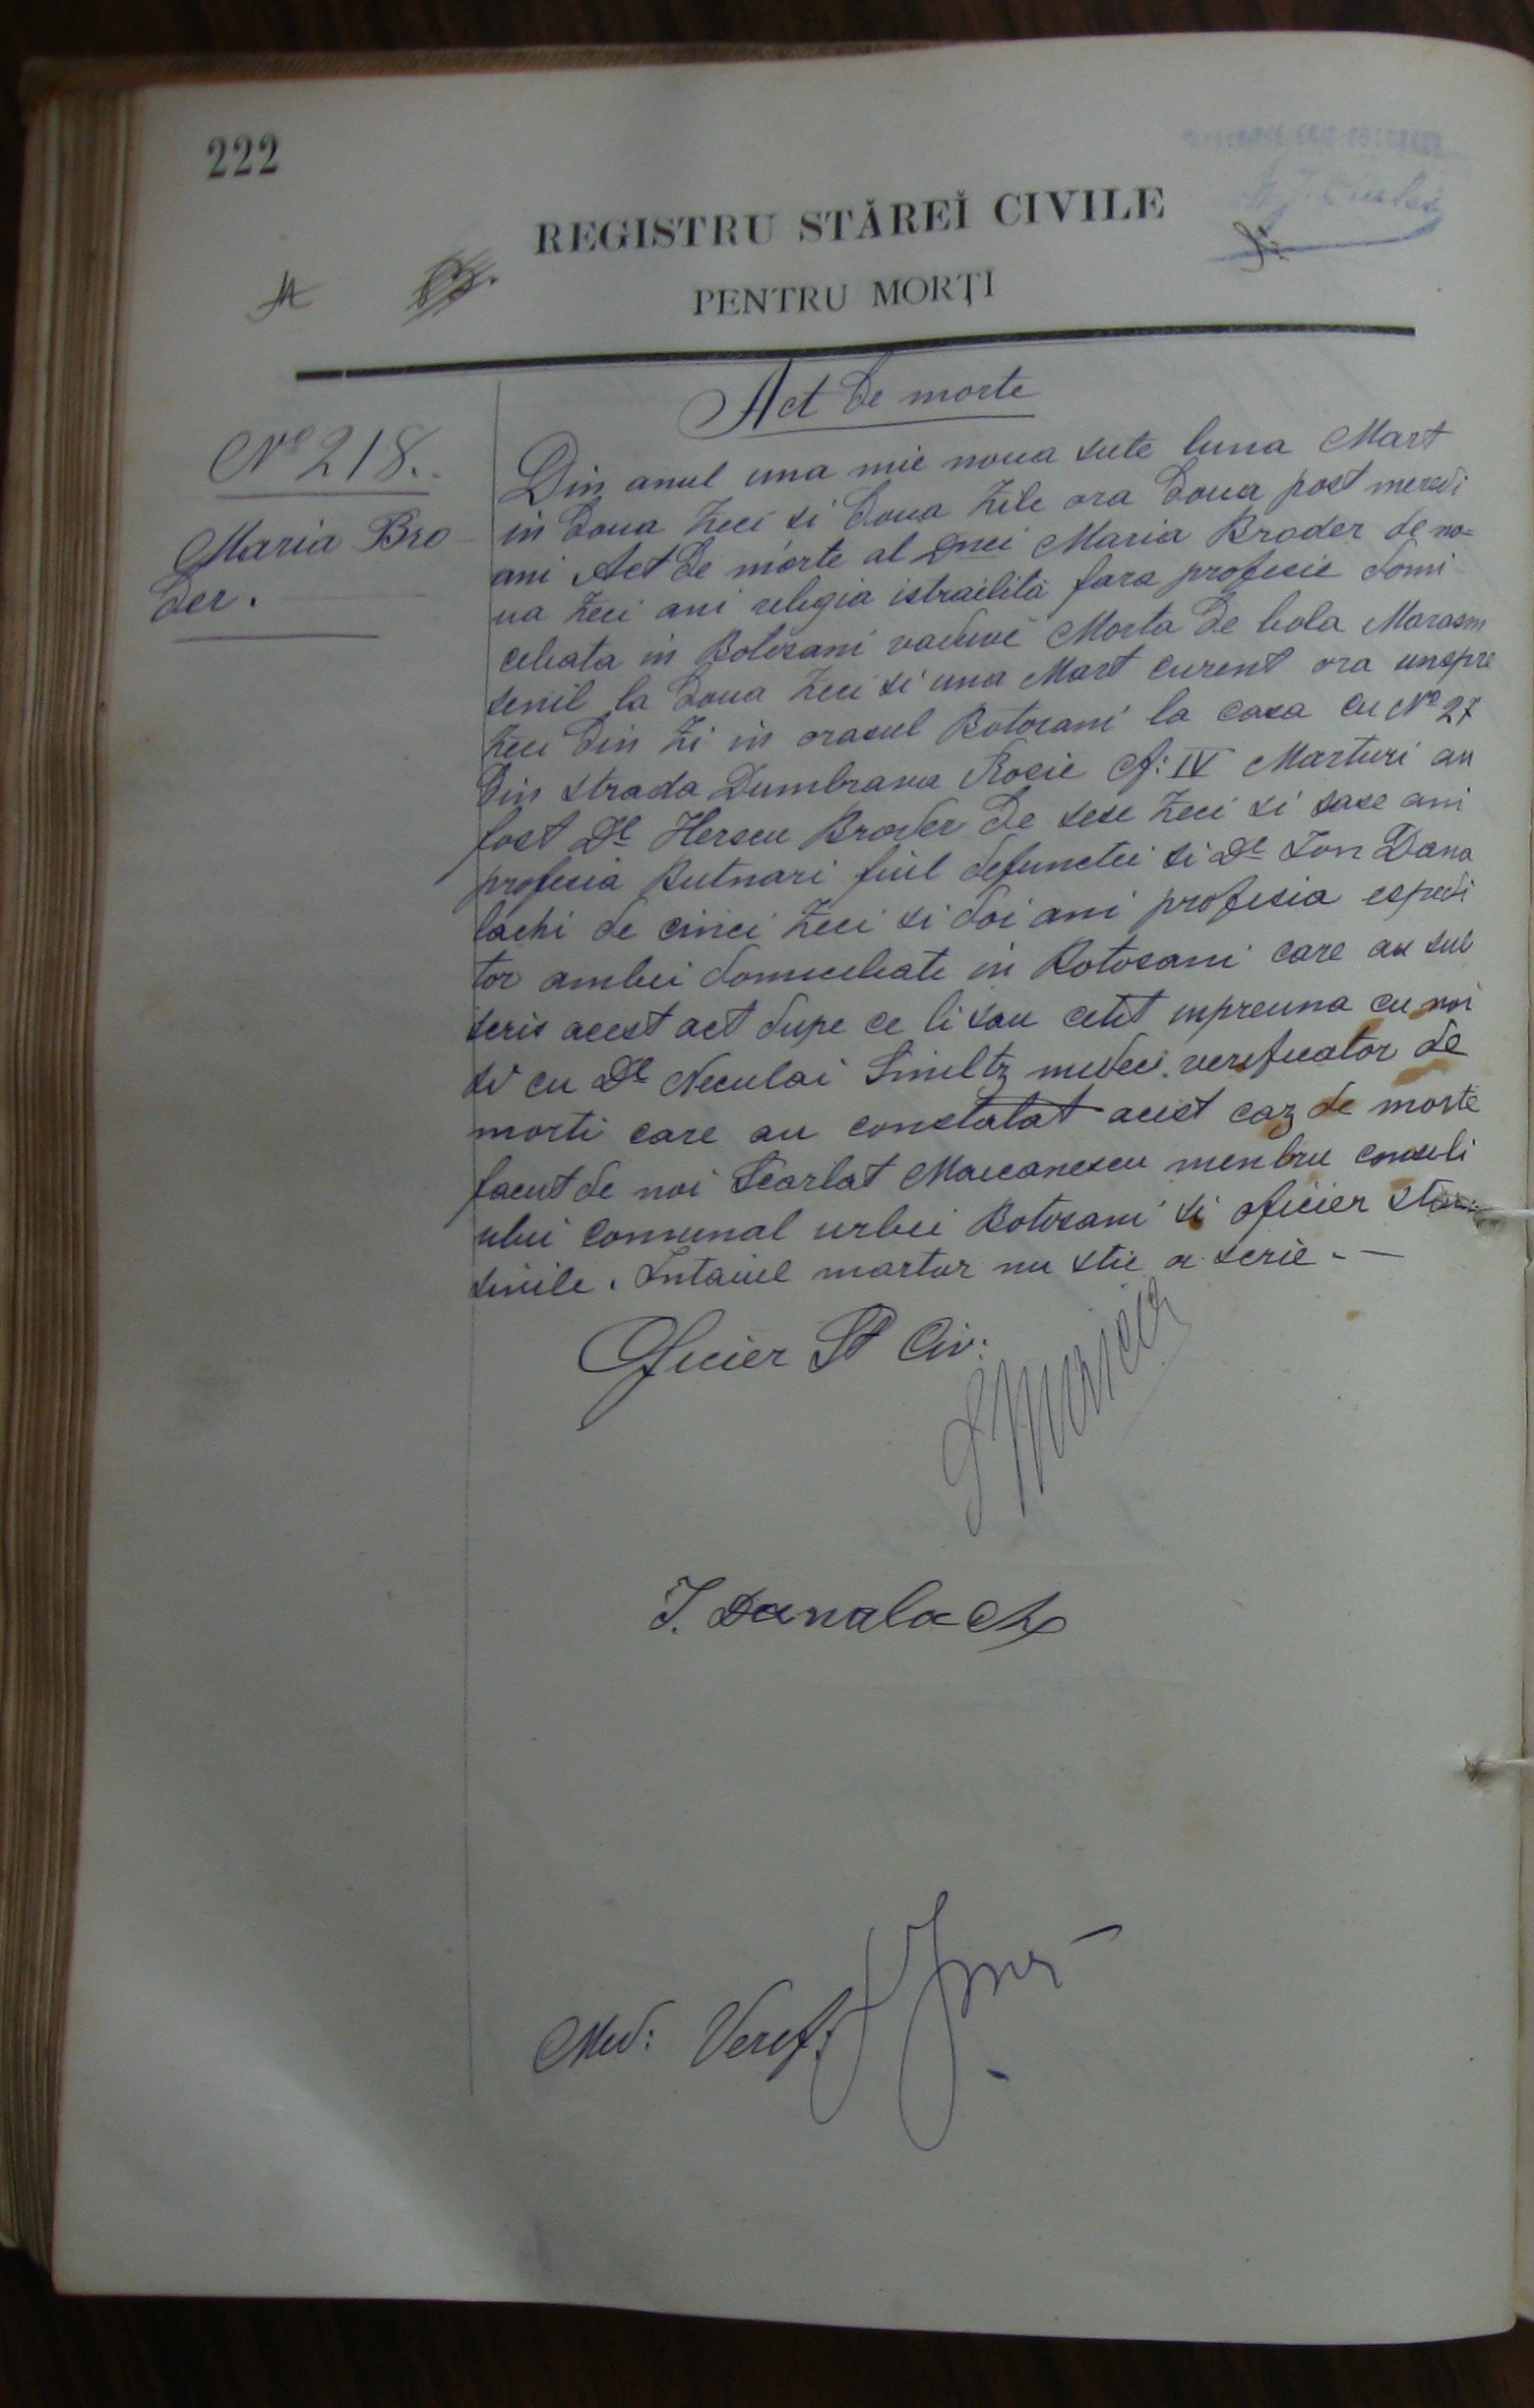 222
REGISTRU STĂREĬ CIVILE
PENTRU MORŢI
Act de morte
Nº 218.
Maria Bro
der.
Din anul una mie noua sute luna Mart
in doua zeci si doua zile ora doua post meredi
ani Act de morte al Dnei Maria Broder de no=
ua zeci ani religia istraelită fara profesie domi
celiata in Botosani vaduve Morta de bola Marasm
senil la doua zeci si una Mart curent ora unspre
zeci din zi in orasul Botosani la casa cu Nº 27
din strada Dumbrava Rosie A: IV Marturi au
fost Dl Herscu Broder de sese zeci si sase ani
profesia Butnari fiul defunctei si Dl Ion Dana
lachi de cinci zeci si doi ani profesia espedi
tor ambii domiceliate in Botosani care au sub
scris acest act dupe ce li sau cetit inpreuna cu noi
si cu Dl Neculai Smeltz medec verificator de
morti care au constatat acest caz de morte
facut de noi Scarlat Maicanescu menbru consili
ului comunal urbei Botosani si oficier starei
sivile. Intaiul martur nu stie a serie. —
Oficier St Civ:
I. Danalachi
Med: Veref: